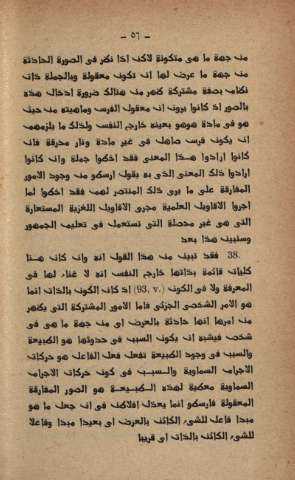 - ٥٦ -
من جهة ما هى متكونة لاكن اذا نكر فى الصورة الحادثة
من جهة ما عرض لها ان تكون معقولة وبالجملة ذات
نكام بصفة مشتركة كهر من هنالك ضرورة ادخال هذه
بالصور اذ كانوا يرون ان معقول الفرس وماهيته من حيث
هو فى مادة هوهو بعينه خارج النفس ولذلك ما يلزمهم
ان يكون فرس صاهل فى غير مادة ونار محرقة فان
كانوا ارادوا هذا المعنى فقد اخكوا جملة وان كانوا
ارادوا ذلك المعنى الذى به يقول ارسكو من وجود الامور
المفارقة على ما يرى ذلك المنتصر لهم فقد اخكوا لما
اجروا الاقاويل العلمية مجرى الاقاويل اللغزية المستعارة
التى هى غير محصلة التى تستعمل فى تعليم الجمهور
وسنبين هذا بعد
38. فقد تبين من هذا القول انه وان كانت هنا
كليات قائمة بذاتها خارج النفس انه لا غناء لها فى
المعرفة ولا فى الكون (93, v.) اذ كان الكون بالذات انما
هو الامر الشخصى الجزئى فاما الامور المشتركة التى يكهر
من امرها انها حادثة بالعرض اى من جهة ما هى فى
شخص فيشبه ان يكون السبب فى حدوثها هو الكبيعة
والسبب فى وجود الكبيعة تفعل فعل الفاعل هو حركات
الاجرام السماوية والسبب فى كون حركات الاجرام
السماوية معكية لهذه الكبيعة هو الصور المفارقة
المعقولة فارسكو انما يعذل افلاكن فى ان جعل ما هو
مبدا فاعل للشىء الكائن بالعرض اى بعيدا مبدا وفاعلا
للشىء الكائن بالذات اى قريبا